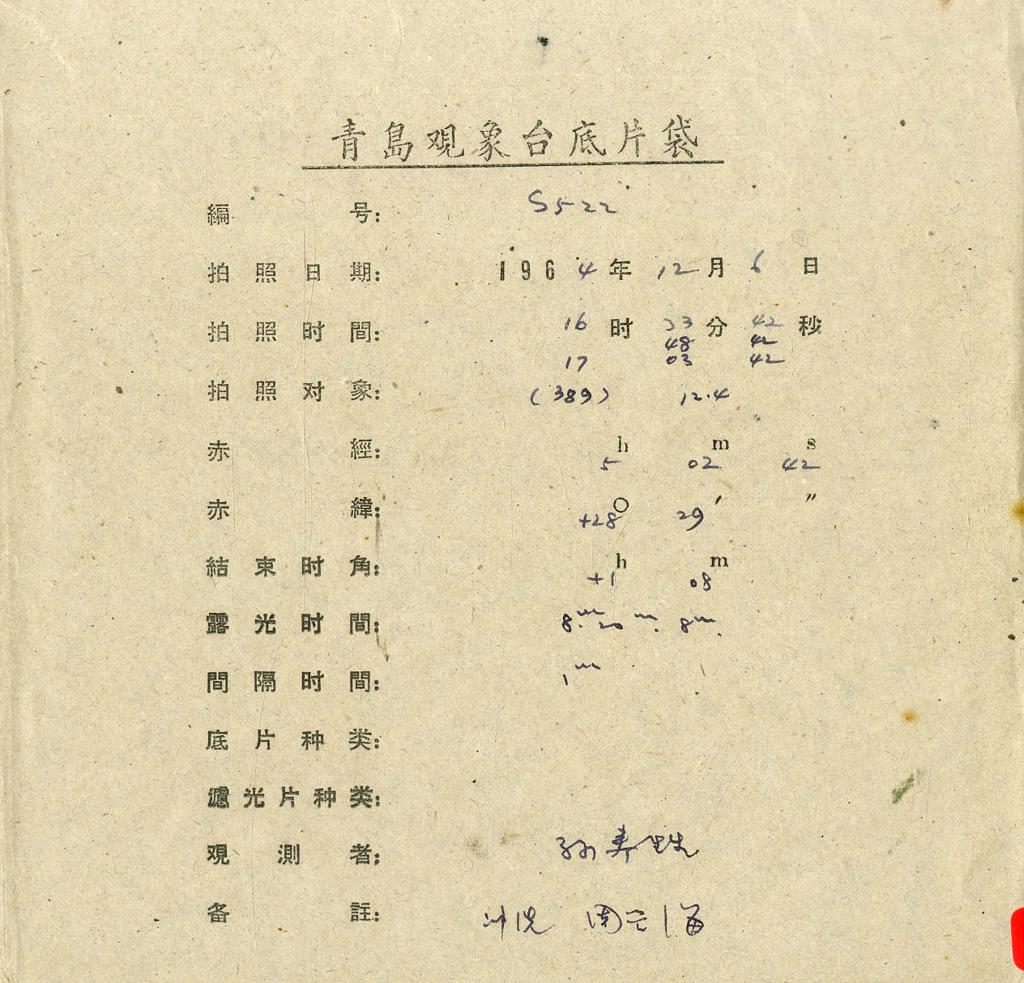 青島观象台底片袋
編号: S522
拍照日期: 1964年12月6日
拍照时間: 16时33分42秒
48 42
17 03 42
拍照对象: (389) 12.4
赤經: 5h 02m 42s
赤緯: +28° 29′ ″
結束时角: +1h 08m
露光时間: 8m. 20m. 8m.
間隔时間: 1m
底片种类:
濾光片种类:
观測者: 孙寿
备註: 冲洗